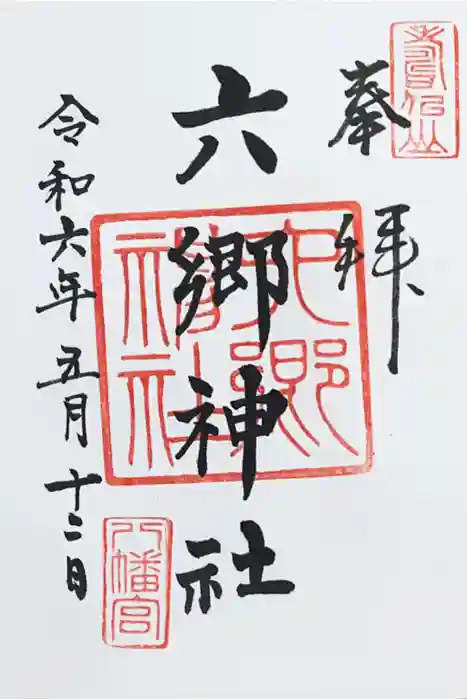 奉拝
六郷神社
令和六年五月十二日
八幡宮